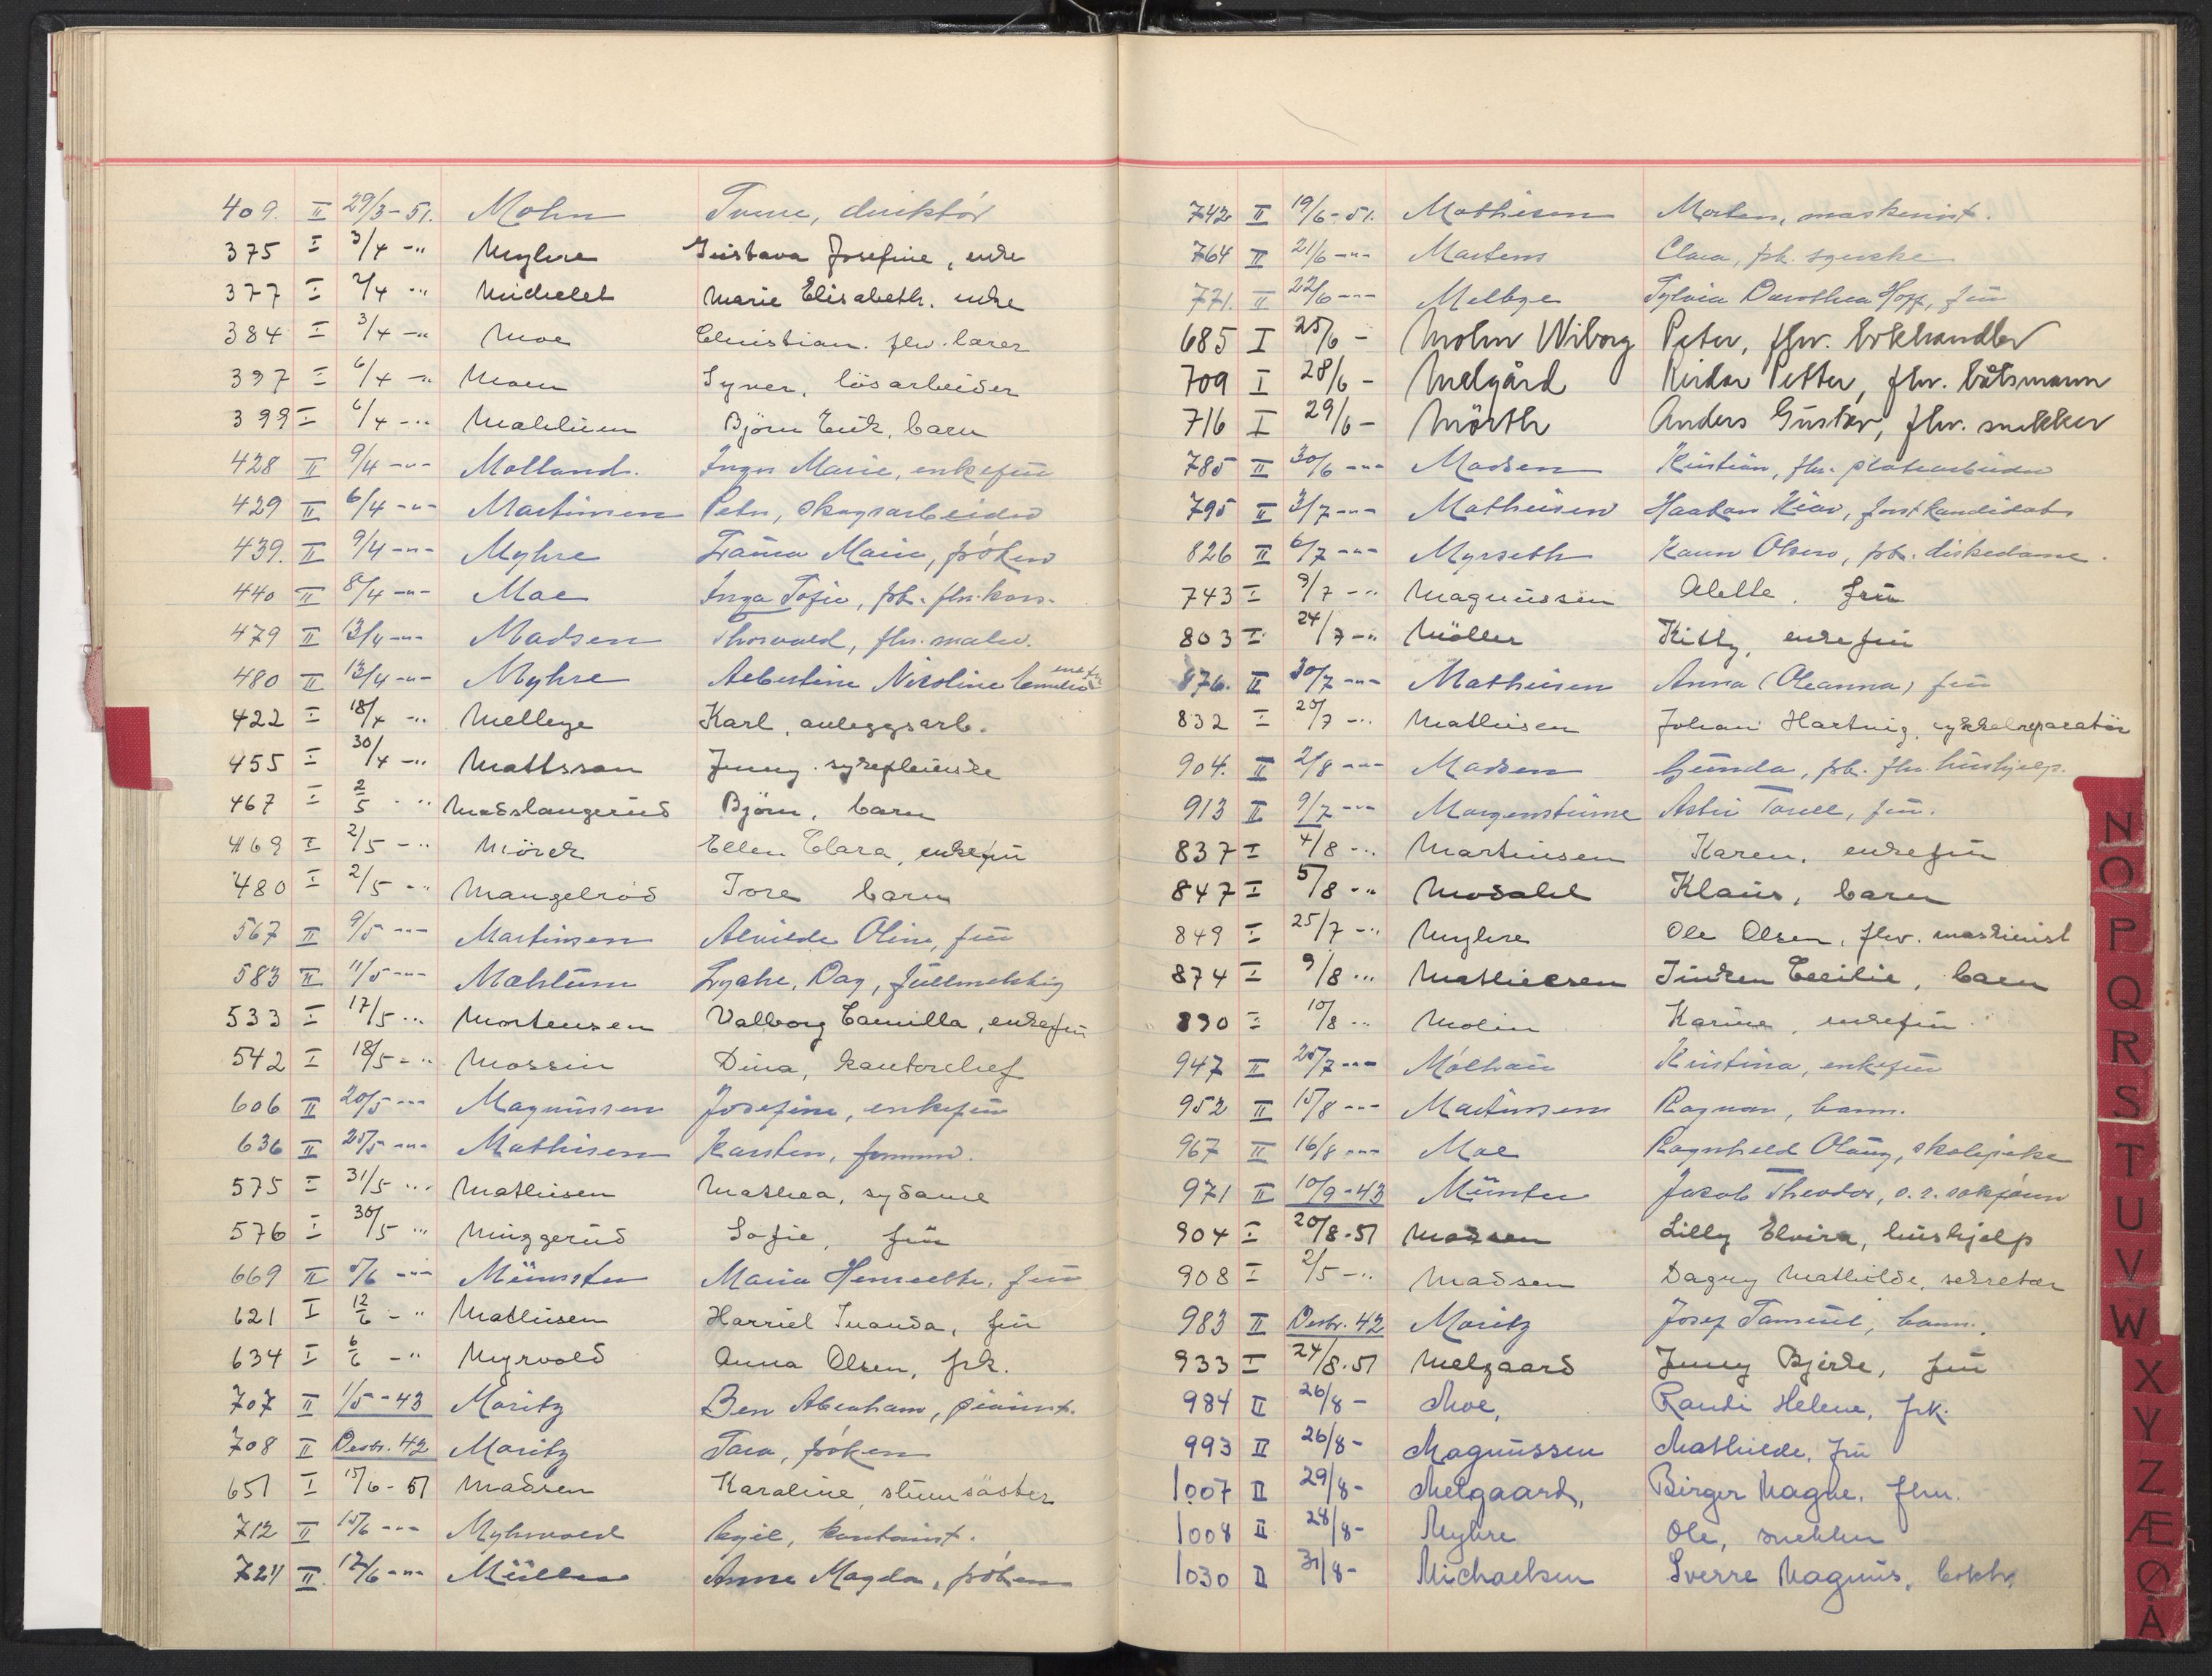 409. II 29/3-51. Mohn Sverre, direktör
375 I 3/4 -" Myhre Gustava Josefine, enke
377 I 2/4 -" Michelet Marie Elisabeth, enke
384 I 3/4 -" Moe Christian. fhv. lærer
397 I 6/4 -" Moen Syver, lösarbeider
399 I 6/4 -" Mahlum Björn Erik, barn
428 II 9/4 -"- Molland. Inga Marie, enkefru
429 II 6/4 -"- Martinsen Peter, skogsarbeider
439. II 9/4 -"- Myhre Marie, fröken
440 II 8/4 -"- Moe Inga Sofie, frk. fhv.
479 II 13/4 -"- Madsen Thorvald, fhv. maler.
480 II 13/4 -"- Myhre Albertine Nicoline
422 I 18/4 -" Mellbye Karl, anleggsarb.
455 I 30/4 -" Mattsson Jenny. sykepleierske
467 I 2/5 -" Madslangerud Björn, barn
469 I 2/5 -" Mörck Ellen Clara, enkefru
480 I 2/5 -" Mangelröd Tore barn
567 II 9/5 -"- Martinsen Alvilde Oline, fru
583 II 11/5 -"- Mahlum Lyche, Dag, fullmektig
533 I 17/5 -" Mortensen Valborg Camilla, enkefru
542 I 18/5 -" Mossin Dina, kontorchef
606 II 20/5 -"- Magnussen Josefine, enkefru
636 II 25/5 -"- Mathisen Karsten, formann.
575 I 31/5 -" Mathisen Mathea, sydame
576 I 30/5 -" Muggerud Sofie, fru
669 II 5/6 -"- Münster Maria Henriette, fru
621 I 12/6 -" Mathisen Harriet fru
634 I 6/6 -" Myrvold Anna Olsen, frk.
707 II 1/5-43 Moritz Ben Abraham, pianist.
708 II Desbr. 42 Moritz Sara, fröken
651 I 15/6-51 Madsen Karoline
712 II 15/6 -"- Myhrvold Egil, kontorist.
721 II 12/6 -"- Müller Anne Magda, fröken
742 II 19/6-51. Mathisen Morten, maskinist.
764 II 21/6 -"- Martens Clara, frk. syerske
771. II 22/6 -"- Melbye Sylvia Dorothea Hoff, fru
685 I 25/6 - Mohn Wiborg Peter, fhv. bokhandler
709 I 28/6 - Melgård Reidar Petter, fhv. båtsmann
716 I 29/6 - Mörth Anders Gustav, fhv. snekker
785 II 30/6 -"- Madsen Kristian, fhv. platearbeider
795 II 3/7 -"- Mathiesen Haakon Kiær, forstkandidat
826 II 6/7 -"- Myrseth Karen Olsen, frk. diskedame.
743 I 9/7 -" Magnussen Alette, fru
803 I 24/7 -" Möller Kitty, enkefru
876. II 30/7 -"- Mathisen Anna (Oleanna) fru
832 I 25/7 -" Mathisen Johan Hartvig, sykkelreparatör
904. II 2/8 -"- Madsen Gunda, frk. fhv. hushjelp.
913 II 9/7 -"- Morgenstierne Astri Torell, fru.
837 I 4/8 -" Martinsen Karen, enkefru
847 I 5/8 -" Modahl Klaus, barn
849 I 25/7 -" Myhre Ole Olsen, fhv. maskinist
874 I 9/8 -" Mathiesen Cecilie, barn
890 I 10/8 -" Molin Karine, enkefru
947 II 25/7 -"- Mölhau Kristina, enkefru
952 II 15/8 -"- Martinsen Ragnar, barn.
967 II 16/8 -"- Moe Ragnhild Olaug, skolepike
971 II 10/9-43 Münter Jakob Theodor, o.r. sakförer
904 I 20/8-51 Madsen Lilly Elvira, hushjelp
908 I 2/5 -" Madsen Dagny Mathilde, sekretær
983 II Desbr. 42 Moritz Josef Samuel, barn.
933 I 24/8-51 Melgaard Jenny Bjerke, fru
984 II 26/8 - Moe, Randi Helene, frk.
993 II 26/8 - Magnussen Mathilde, fru
1007 II 29/8 - Melgaard, Birger Magne. fhv.
1008 II 28/8 - Myhre Ole, snekker
1030 II 31/8 - Michaelsen Sverre Magnus, bokh.
N
O
P
Q
R
S
T
U
V
W
X
Y
Z
Æ
Ø
Å